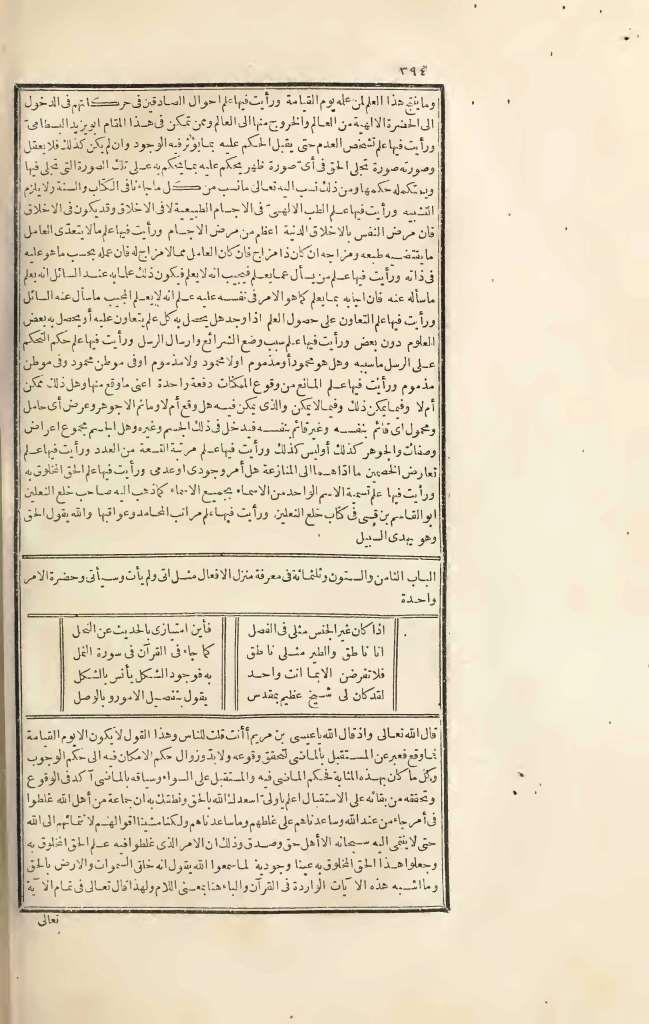 ٣٩٤
وما ينتج هذا العلم لمن عمله يوم القيامة ورأيت فيها علم احوال الصادقين فى حركاتهم فى الدخول
الى الحضرة الالهية من العالم والخروج منها الى العالم وممن تمكن فى هذا المقام ابو يزيد البسطامى
ورأيت فيها علم تشخص العدم حتى يقبل الحكم عليه بما يؤثر فيه الوجود وان لم يكن كذلك فلا يعقل
وصورته صورة تجلى الحق فى أى صورة ظهر يحكم عليه بما يحكم به على تلك الصورة التى تجلى فيها
ويستكمله حكمها ومن ذلك نسب اليه تعالى ما نسب من كل ما جاءنا فى الكتاب والسنة ولا يلزم
التشبيه ورأيت فيها علم الطب الالهى فى الاجسام الطبيعية لا فى الاخلاق وقد يكون فى الاخلاق
فان مرض النفس بالاخلاق الدنية اعظم من مرض الاجسام ورأيت فيها علم ما لا يتعدى العامل
ما يقتضيه طبعه ومزاجه ان كان ذا مزاج فان كان العامل ممن لا مزاج له فان عمله بحسب ما هو عليه
فى ذاته ورأيت فيها علم من يسأل عما يعلم فيجيب انه لا يعلم فيكون ذلك علما به عند السائل انه يعلم
ما سأله عنه فان اجابه بما يعلم كما هو الامر فى نفسه عليه علم انه لا يعلم المجيب ما سأل عنه السائل
ورأيت فيها علم التعاون على حصول العلم اذا وجد هل يحصل به كل علم يتعاون عليه أو يحصل به بعض
العلوم دون بعض ورأيت فيها علم سبب وضع الشرائع وارسال الرسل ورأيت فيها علم حكم التحكم
على الرسل ما سببه وهل هو محمود أو مذموم اولا محمود ولا مذموم او فى موطن محمود وفى موطن
مذموم ورأيت فيها علم المانع من وقوع الممكنات دفعة واحدة اعنى ما وقع منها وهل ذلك ممكن
أم لا وفيما يمكن ذلك وفيما لا يمكن والذى يمكن فيه هل وقع أم لا وما ثم الا جوهر وعرض أى حامل
ومحمول اى قائم بنفسه وغير قائم بنفسه فيدخل فى ذلك الجسم وغيره وهل الجسم مجموع اعراض
وصفات والجوهر كذلك أو ليس كذلك ورأيت فيها علم مرتبة التسعة من العدد ورأيت فيها علم
تعارض الخصمين ما اداهما الى المنازعة هل أمر وجودى او عدمى ورأيت فيها علم الحق المخلوق به
ورأيت فيها علم تسمية الاسم الواحد من الاسماء بجميع الاسماء كما ذهب اليه صاحب خلع النعلين
ابو القاسم بن قسى فى كتاب خلع النعلين ورأيت فيها علم مراتب المحامد وعواقبها والله يقول الحق
وهو يهدى السبيل
الباب الثامن والستون وثلثمائة فى معرفة منزل الافعال مثل اتى ولم يأت وسيأتى وحضرة الامر
واحدة
اذا كان غير الجنس مثلى فى الفصل فأين امتيازى بالحديث عن النحل
انا ناطق والطير مثلى ناطق كما جاء فى القرآن فى سورة النمل
فلا تفرضن الا بما انت واحد به فوجود الشكل يأنس بالشكل
لقد كان لى شيخ عظيم بمقدس يقول بتفصيل الامور وبالوصل
قال الله تعالى واذ قال الله يا عيسى بن مريم أأنت قلت للناس وهذا القول لا يكون الا يوم القيامة
فما وقع فعبر عن المستقبل بالماضى لتحقق وقوعه ولا بد وزوال حكم الامكان فيه الى حكم الوجوب
وكل ما كان بهذه المثابة فحكم الماضى فيه والمستقبل على السواء وسياقه بالماضى آكد فى الوقوع
وتحققه من بقائه على الاستقبال اعلم يا ولى اسعدك الله بالحق ونطقك به ان جماعة من أهل الله غلطوا
فى أمر جاء من عند الله وساعدناهم على غلطهم وما ساعدناهم ولكنا مشينا اقوالهم لانتمائهم الى الله
حتى لا ينتمى اليه سبحانه الا أهل حق وصدق وذلك ان الامر الذى غلطوا فيه علم الحق المخلوق به
وجعلوا هذا الحق المخلوق به عينا وجودية لما سمعوا الله يقول انه خلق السموات والارض بالحق
وما اشبه هذه الآيات الواردة فى القرآن والباء هنا بمعنى اللام ولهذا قال تعالى فى تمام الآية
تعالى